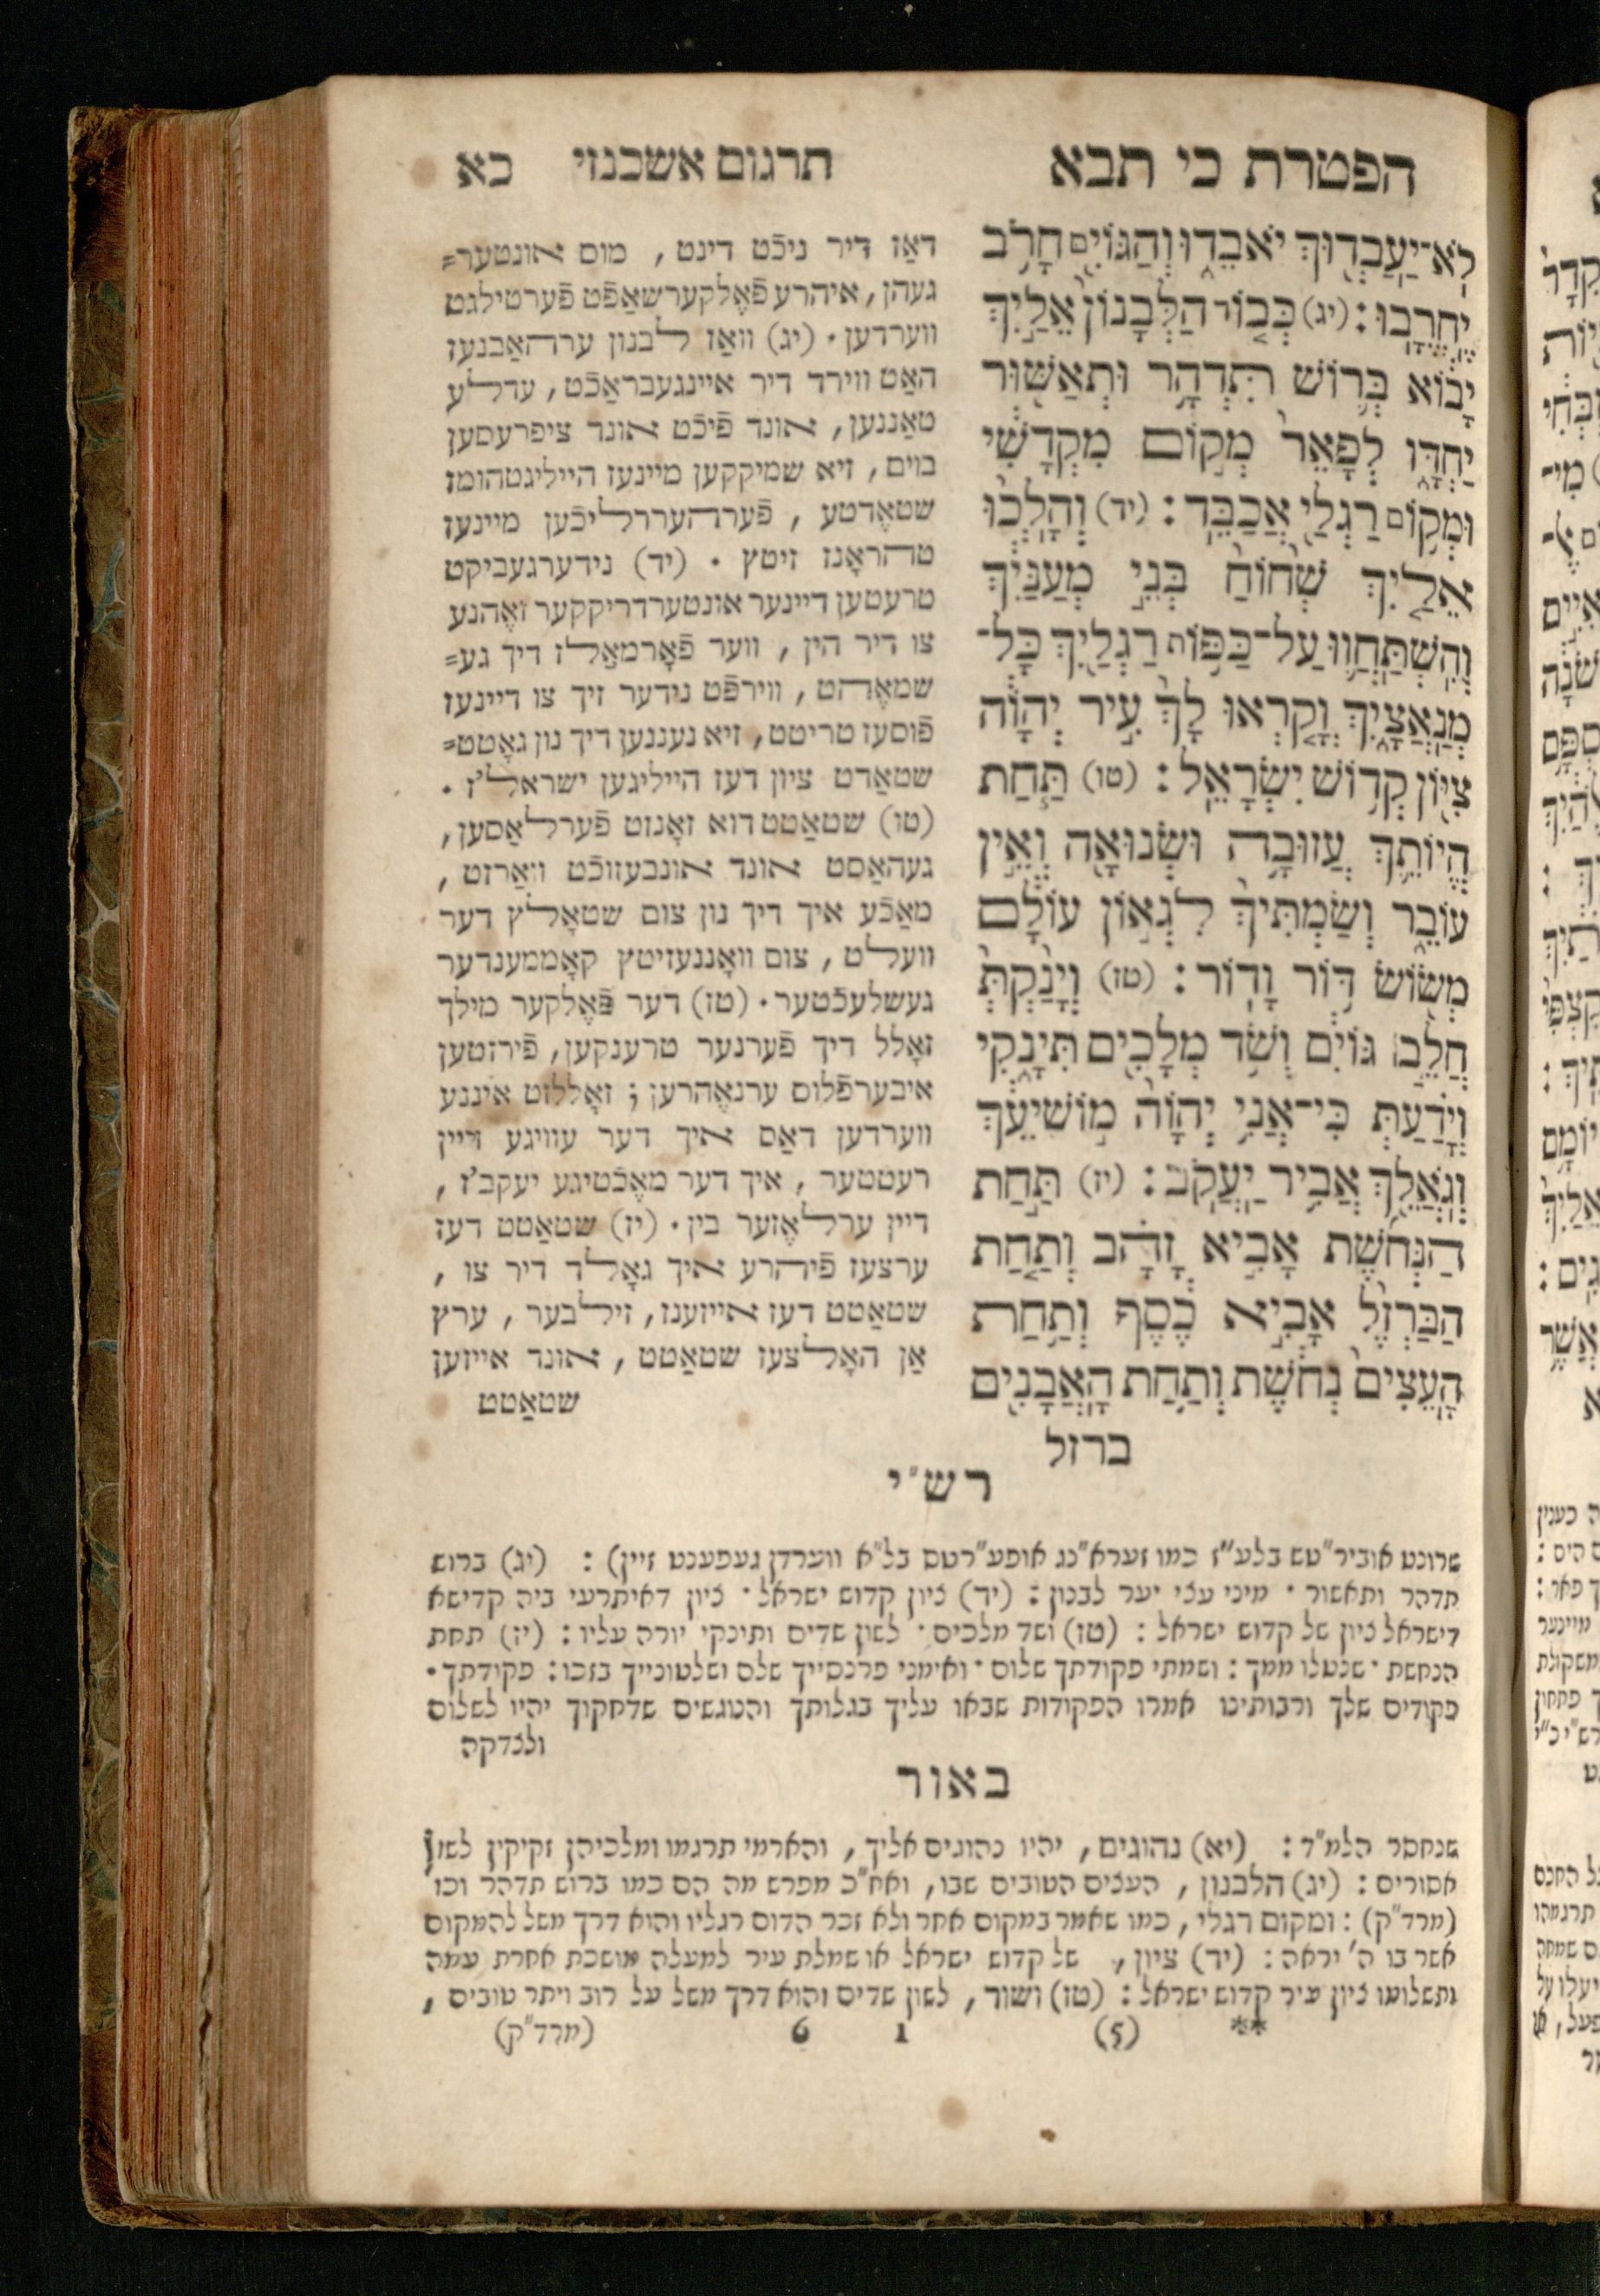 הפטרת כי תבא
תרגום אשכנזי כא
לֹא־יַעַבְדוּךְ יֹאבֵדוּ וְהַגּוֹיִם חָרֹב
יֶחֱרָבוּ׃ (יג) כְּבוֹד הַלְּבָנוֹן אֵלַיִךְ
יָבוֹא בְּרוֹשׁ תִּדְהָר וּתְאַשּׁוּר
יַחְדָּו לְפָאֵר מְקוֹם מִקְדָּשִׁי
וּמְקוֹם רַגְלַי אֲכַבֵּד׃ (יד) וְהָלְכוּ
אֵלַיִךְ שְׁחוֹחַ בְּנֵי מְעַנַּיִךְ
וְהִשְׁתַּחֲווּ עַל־כַּפּוֹת רַגְלַיִךְ כָּל־
מְנַאֲצָיִךְ וְקָרְאוּ לָךְ עִיר יְהוָה
צִיּוֹן קְדוֹשׁ יִשְׂרָאֵל׃ (טו) תַּחַת
הֱיוֹתֵךְ עֲזוּבָה וּשְׂנוּאָה וְאֵין
עוֹבֵר וְשַׂמְתִּיךְ לִגְאוֹן עוֹלָם
מְשׂוֹשׂ דּוֹר וָדוֹר׃ (טז) וְיָנַקְתְּ
חֲלֵב גּוֹיִם וְשֹׁד מְלָכִים תִּינָקִי
וְיָדַעַתְּ כִּי־אֲנִי יְהוָה מוֹשִׁיעֵךְ
וְגֹאֲלֵךְ אֲבִיר יַעֲקֹב׃ (יז) תַּחַת
הַנְּחֹשֶׁת אָבִיא זָהָב וְתַחַת
הַבַּרְזֶל אָבִיא כֶסֶף וְתַחַת
הָעֵצִים נְחֹשֶׁת וְתַחַת הָאֲבָנִים
ברזל
דאַז דיר ניכֿט דינט, מוס אונטער=
געהן, איהרע פֿאָלקערשאַפֿט פֿערטילגט
ווערדען. (יג) וואַז לבנון ערהאַבנעז
האַט ווירד דיר איינגעבראַכֿט, עדלע
טאַננען, אונד פֿיכֿט אונד ציפרעסען
בוים, זיא שמיקקען מיינעז הייליגטהומז
שטאֶדטע, פֿערהעררליכֿען מיינעז
טהראָנז זיטץ. (יד) נידערגעביקט
טרעטען דיינער אונטערדריקקער זאֶהנע
צו דיר הין, ווער פֿאָרמאַלז דיך גע=
שמאֶהט, ווירפֿט נידער זיך צו דיינעז
פֿוסעז טריטט, זיא נעננען דיך נון גאָטט=
שטאַדט ציון דעז הייליגען ישראל'ז.
(טו) שטאַטט דוא זאָנזט פֿערלאַסען,
געהאַסט אונד אונבעזוכֿט וואַרזט,
מאַכֿע איך דיך נון צום שטאָלץ דער
וועלט, צום וואָננעזיטץ קאָממענדער
געשלעכֿטער. (טז) דער פֿאֶלקער מילך
זאָלל דיך פֿערנער טרענקען, פֿירזטען
איבערפֿלוס ערנאֶהרען; זאָללזט איננע
ווערדען דאַס איך דער עוויגע דיין
רעטטער, איך דער מאֶכֿטיגע יעקב'ז,
דיין ערלאֶזער בין. (יז) שטאַטט דעז
ערצעז פֿיהרע איך גאָלד דיר צו,
שטאַטט דעז אייזענז, זילבער, ערץ
אַן האָלצעז שטאַטט, אונד אייזען
שטאַטט
רש"י
שרונט אוביר"טש בלע"ז כמו זערא"נג אופע"רטס בל"א ווערדן געפענט זיין): (יג) ברוש
תדהר ותאשור. מיני עצי יער לבנון: (יד) ציון קדוש ישראל. ציון דאיתרעי ביה קדישא
דישראל ציון של קדוש ישראל: (טז) ושד מלכים. לשון שדים ותינקי יורה עליו: (יז) תחת
הנחשת. שנטלו ממך: ושמתי פקודתך שלום. ואימני פרנסייך שלם ושלטונייך בזכו: פקודתך.
פקודים שלך ורבותינו אמרו הפקודות שבאו עליך בגלותך והנוגשים שדחקוך יהיו לשלום
ולצדקה
באור
שנחסר הלמ"ד: (יא) נהוגים, יהיו נהוגים אליך, והארמי תרגמו ומלכיהן זקיקין לשון
אסורים: (יג) הלבנון, העצים הטובים שבו, ואח"כ מפרש מה הם כמו ברוש תדהר וכו
(מרד"ק): ומקום רגלי, כמו שאמר במקום אחר ולא זכר הדום רגליו והוא דרך משל להמקום
אשר בו ה' יראה: (יד) ציון, של קדוש ישראל או שמלת עיר למעלה מושכת אחרת עמה
ותשלומו ציון עיר קדוש ישראל: (טז) ושוד, לשון שדים והוא דרך משל על רוב ויתר טובים,
** (5) 1 6 (מרד"ק)